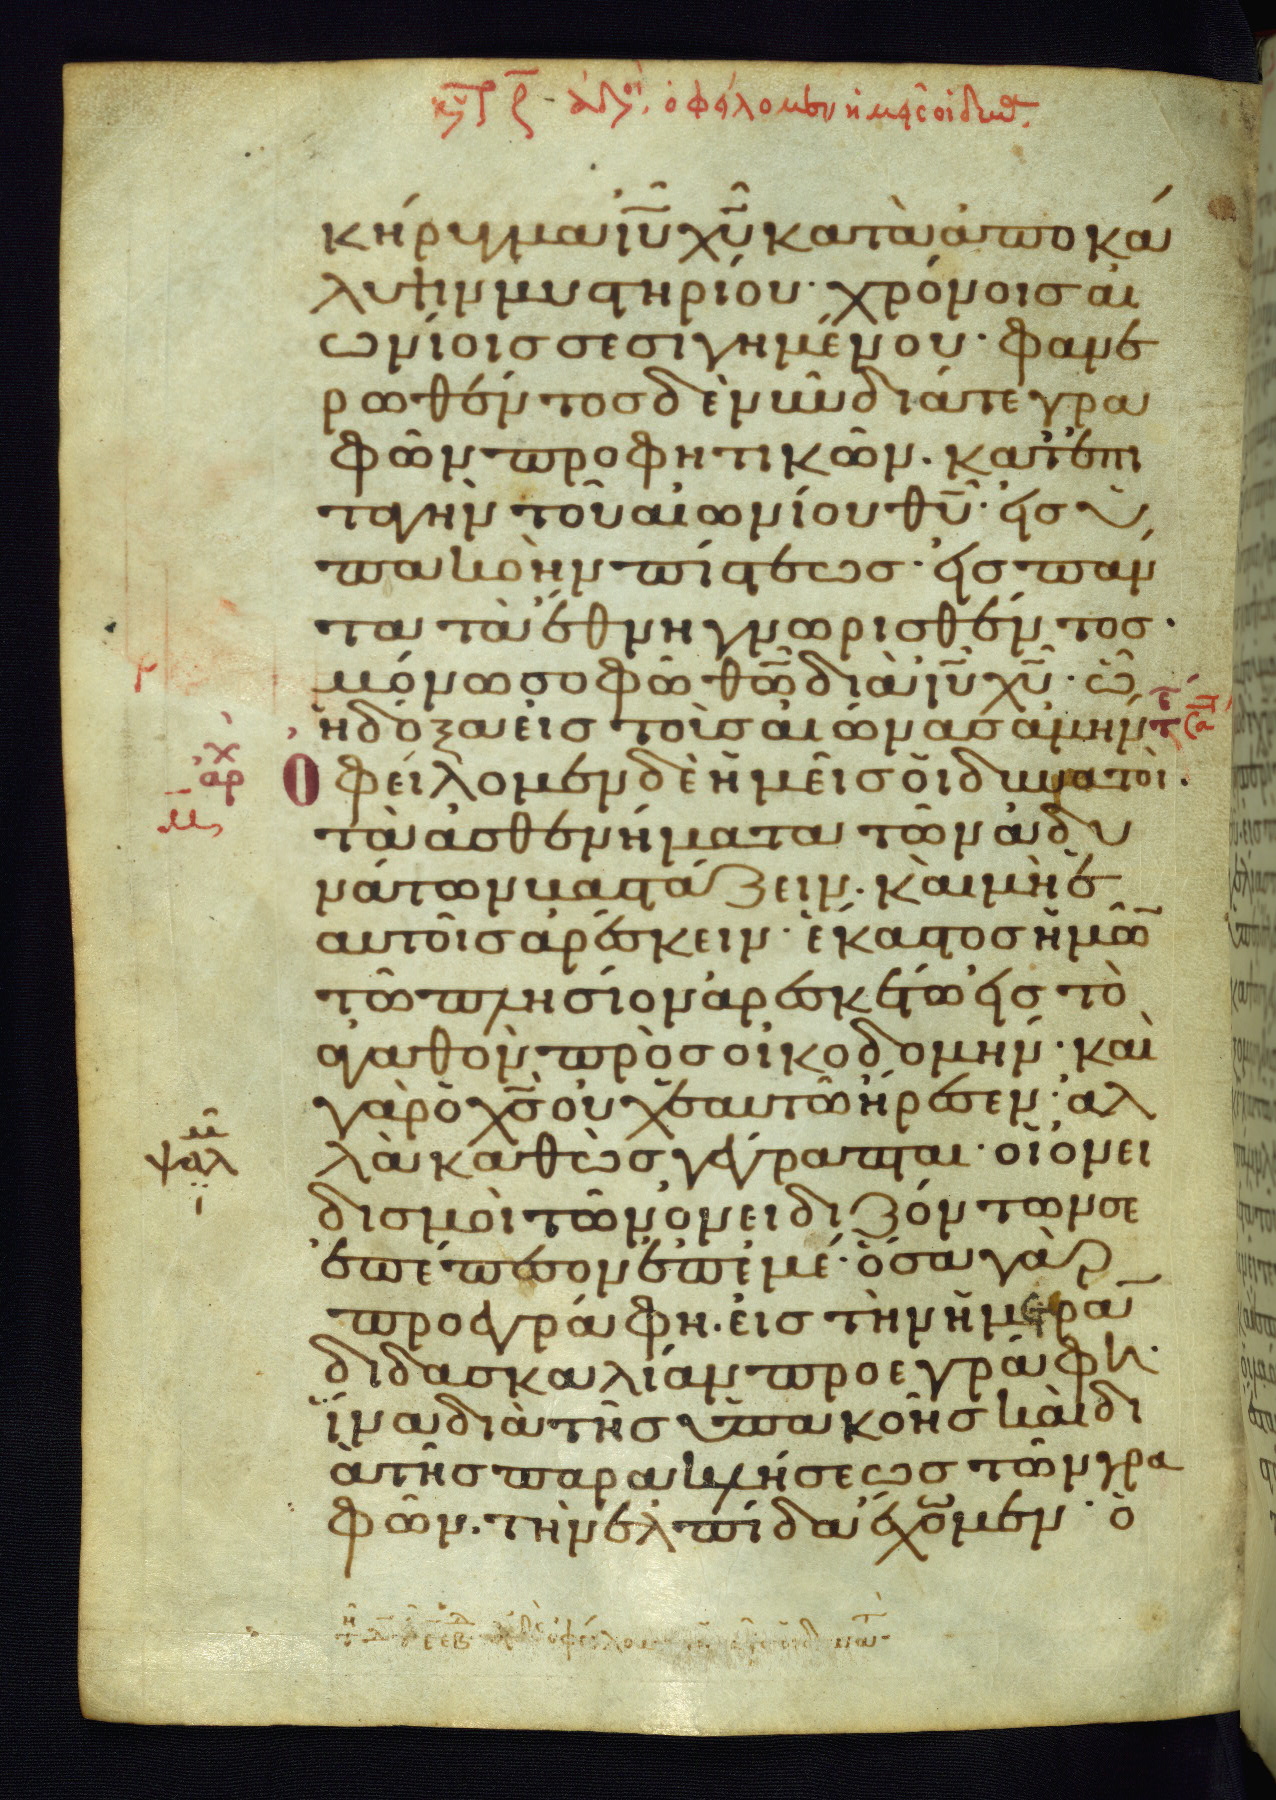 κήρυγμα ἰ̅υ̅ χ̅υ̅ κατὰ ἀποκά
λυψιν μυστηρίου· χρόνοισ αἰ
ωνίοισ σεσιγημένου· φανε
ρωθέντοσ δὲ νῦν διά τε γρα
φῶν προφητικῶν. κατ ἐπι
ταγὴν τοῦ αἰωνίου θ̅υ̅· εἰσ ὑ
πακοὴν πίστεωσ· εἰσ πάν
τα τὰ ἔθνη γνωρισθέντοσ·
μόνω σοφῶ θ̅ω̅ διὰ ἰ̅υ̅ χ̅υ̅· ὧ
ἡ δόξα εἰσ τοὺσ αἰώνασ ἀμήν
Ὀφείλομεν δὲ ἡμεῖσ οἱ δυνατοὶ.
τὰ ἀσθενήματα τῶν ἀδυ
νάτων βαστάζειν. καὶ μὴ ἑ
αυτοῖσ ἀρέσκειν· ἕκαστοσ ἡμῶ̅
τῶ πλησίον ἀρεσκέτω εἰσ τὸ
ἀγαθὸν πρὸσ οἰκοδομήν· καὶ
γὰρ ὁ χ̅σ̅ οὐχ ἑαυτῶ ἤρεσεν· ἀλ
λὰ καθὼσ γέγραπται· οἱ ὀνει
δισμοὶ τῶν ὀνειδιζόντων σε
ἐπέπεσον ἐπ ἐμέ· ὅσα γὰρ
προεγράφη. εἰσ τὴν ἡμετέρα̅
διδασκαλίαν προεγράφη·
ἵνα διὰ τῆσ ὑπακοῆσ καὶ δι
ὰ τῆσ παρακλήσεωσ τῶν γρα
φῶν. τὴν ἐλπίδα ἔχομεν· ὁ
ἀρχ
ψαλ